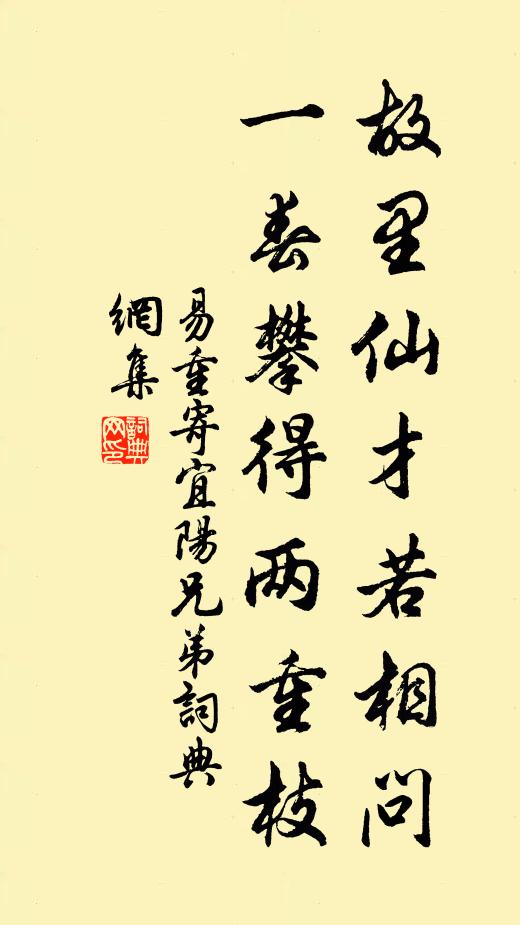 故里仙才若相问
一春攀得两重枝
易重寄宜陽兄弟詞典
網集
詞典网印